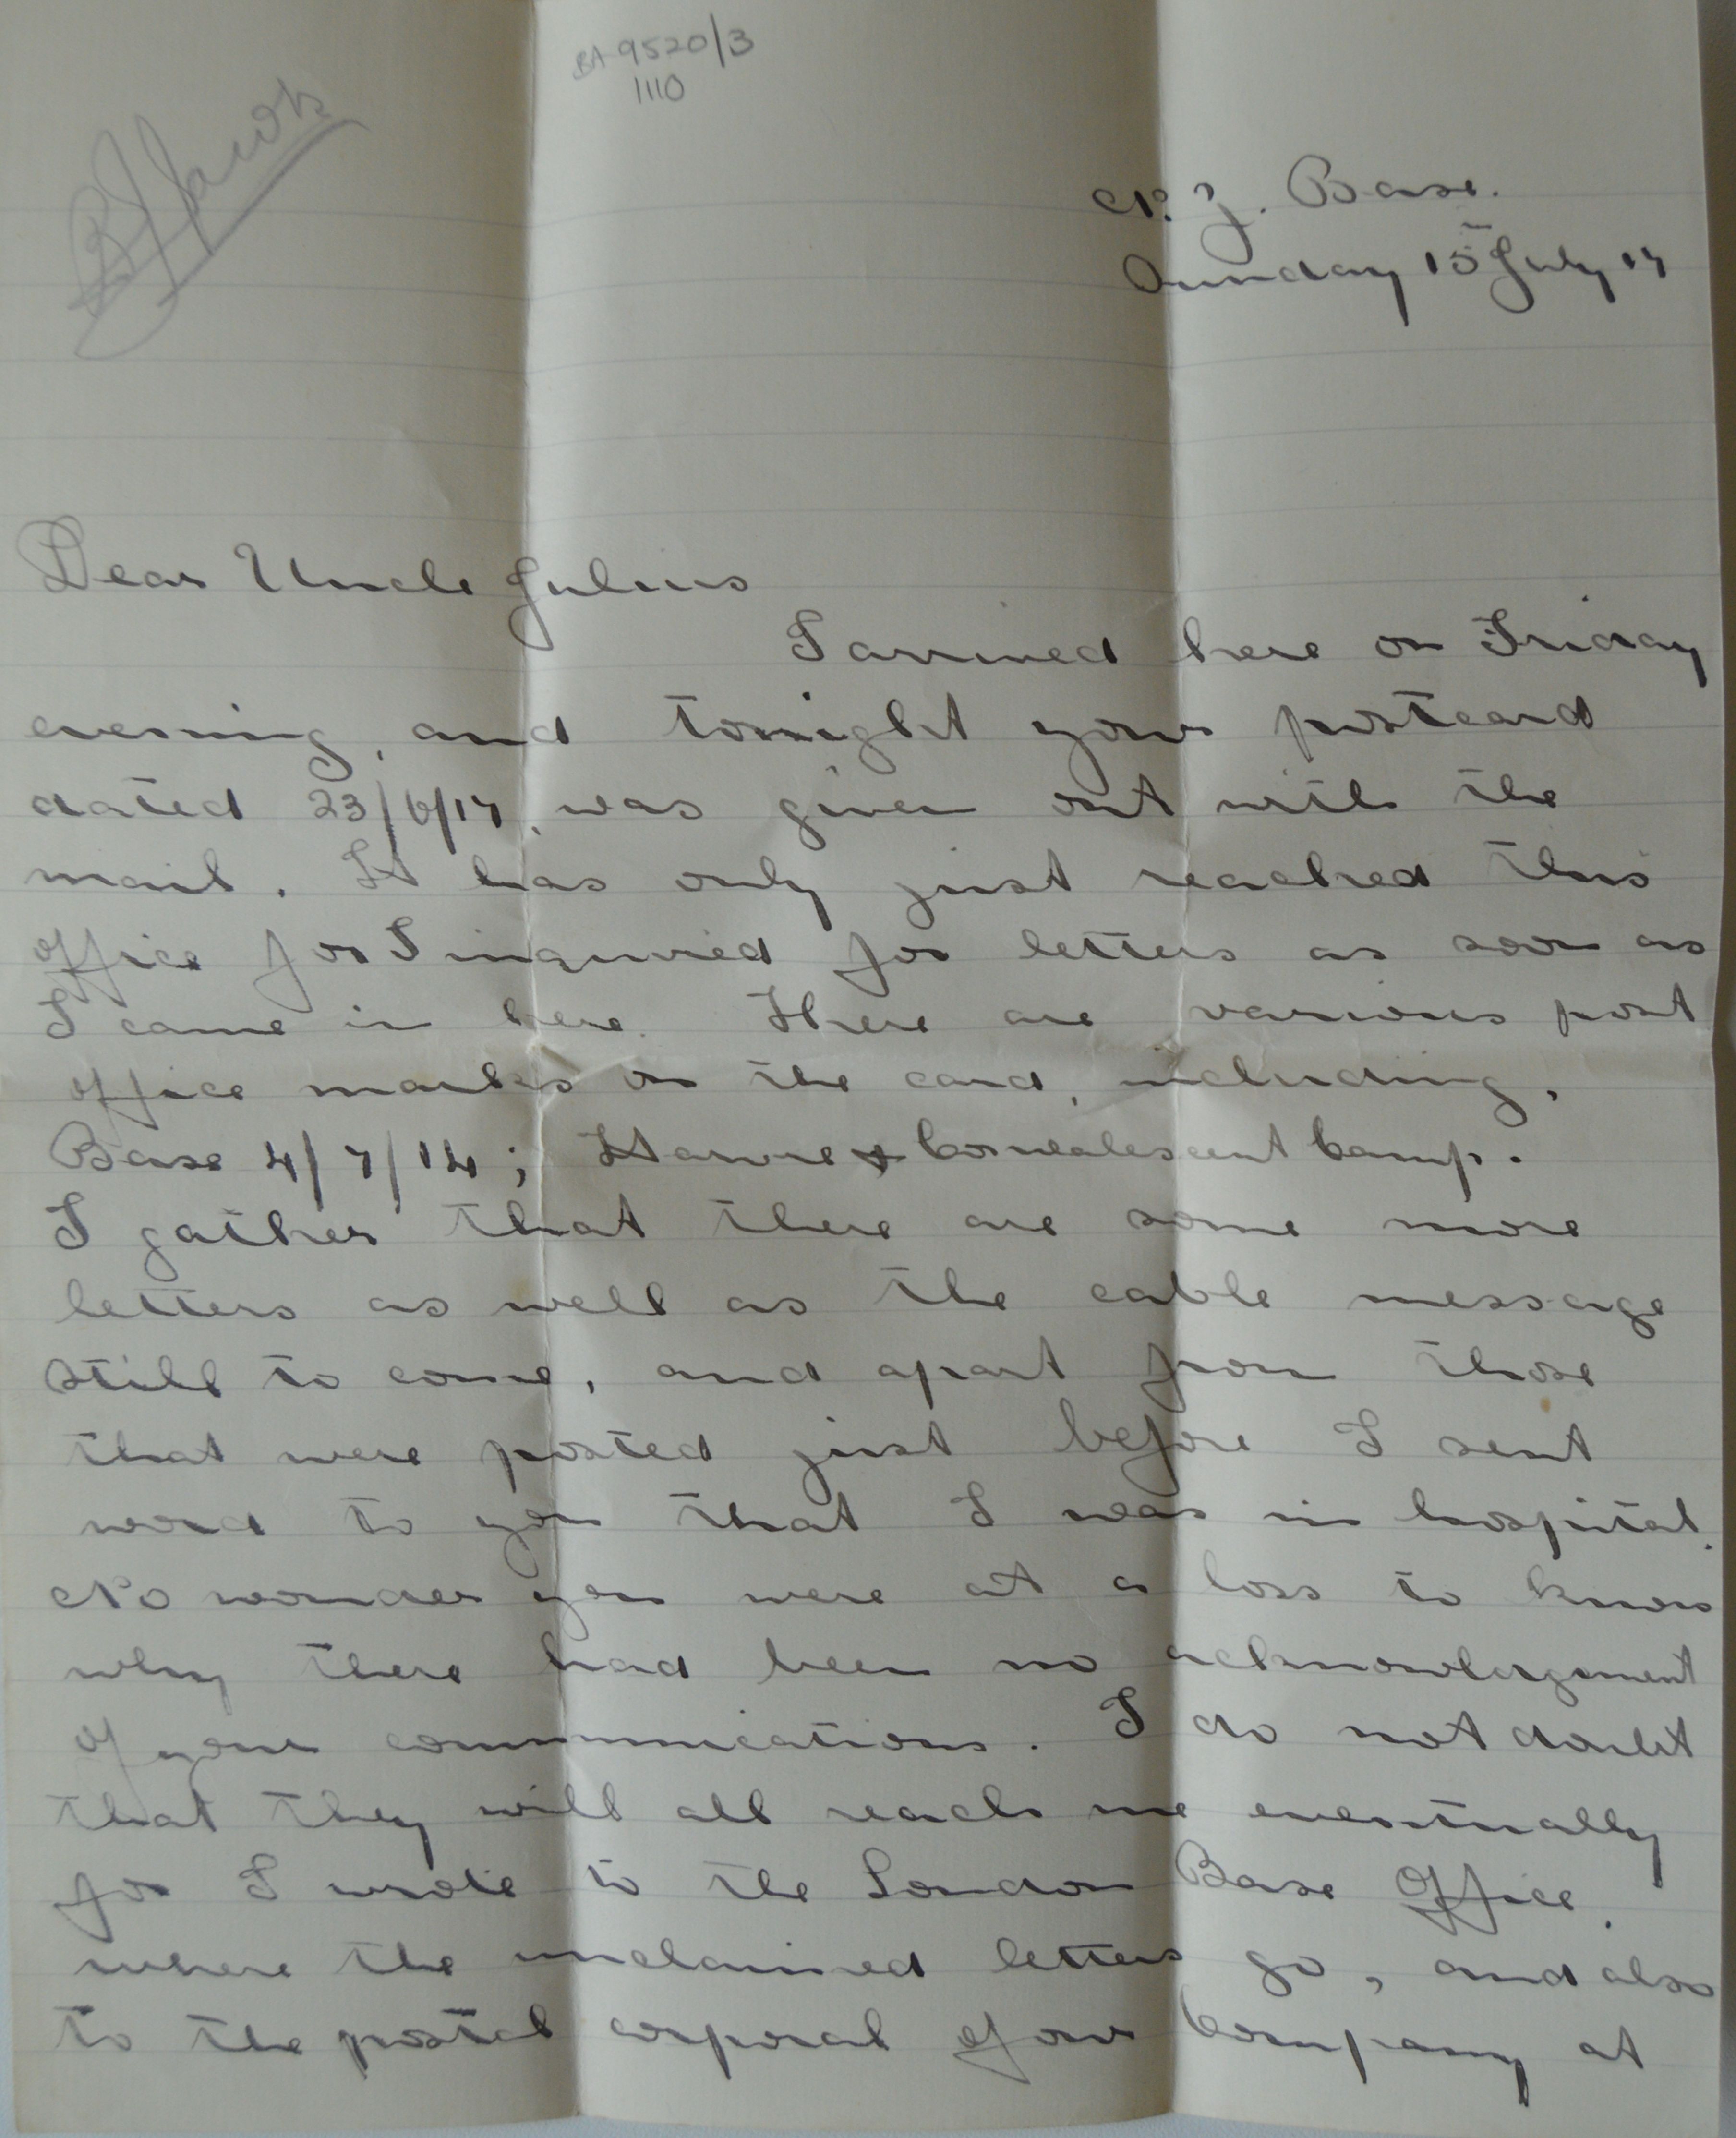 BA 9520/3
1110
N.Z. Base.
Sunday 15th July 17
Dear Uncle Julius
I arrived here on Friday
evening, and tonight your postcard
dated 23/6/17, was given out with the
mail. It has only just reached this
office for I inquired for letters as soon as
I came in here. There are various post
office marks on the card, including,
Base 4/7/14; Havre & Convalescent Camp.
I gather that there are some more
letters as well as the cable message
still to come, and apart from those
that were posted just before I sent
word to you that I was in hospital.
No wonder you were at a loss to know
why there had been no acknowlegement
of your communications. I do not doubt
that they will all reach me eventually
for I wrote to the London Base Office,
where the unclaimed letters go, and also
to the postal corporal of our Company at